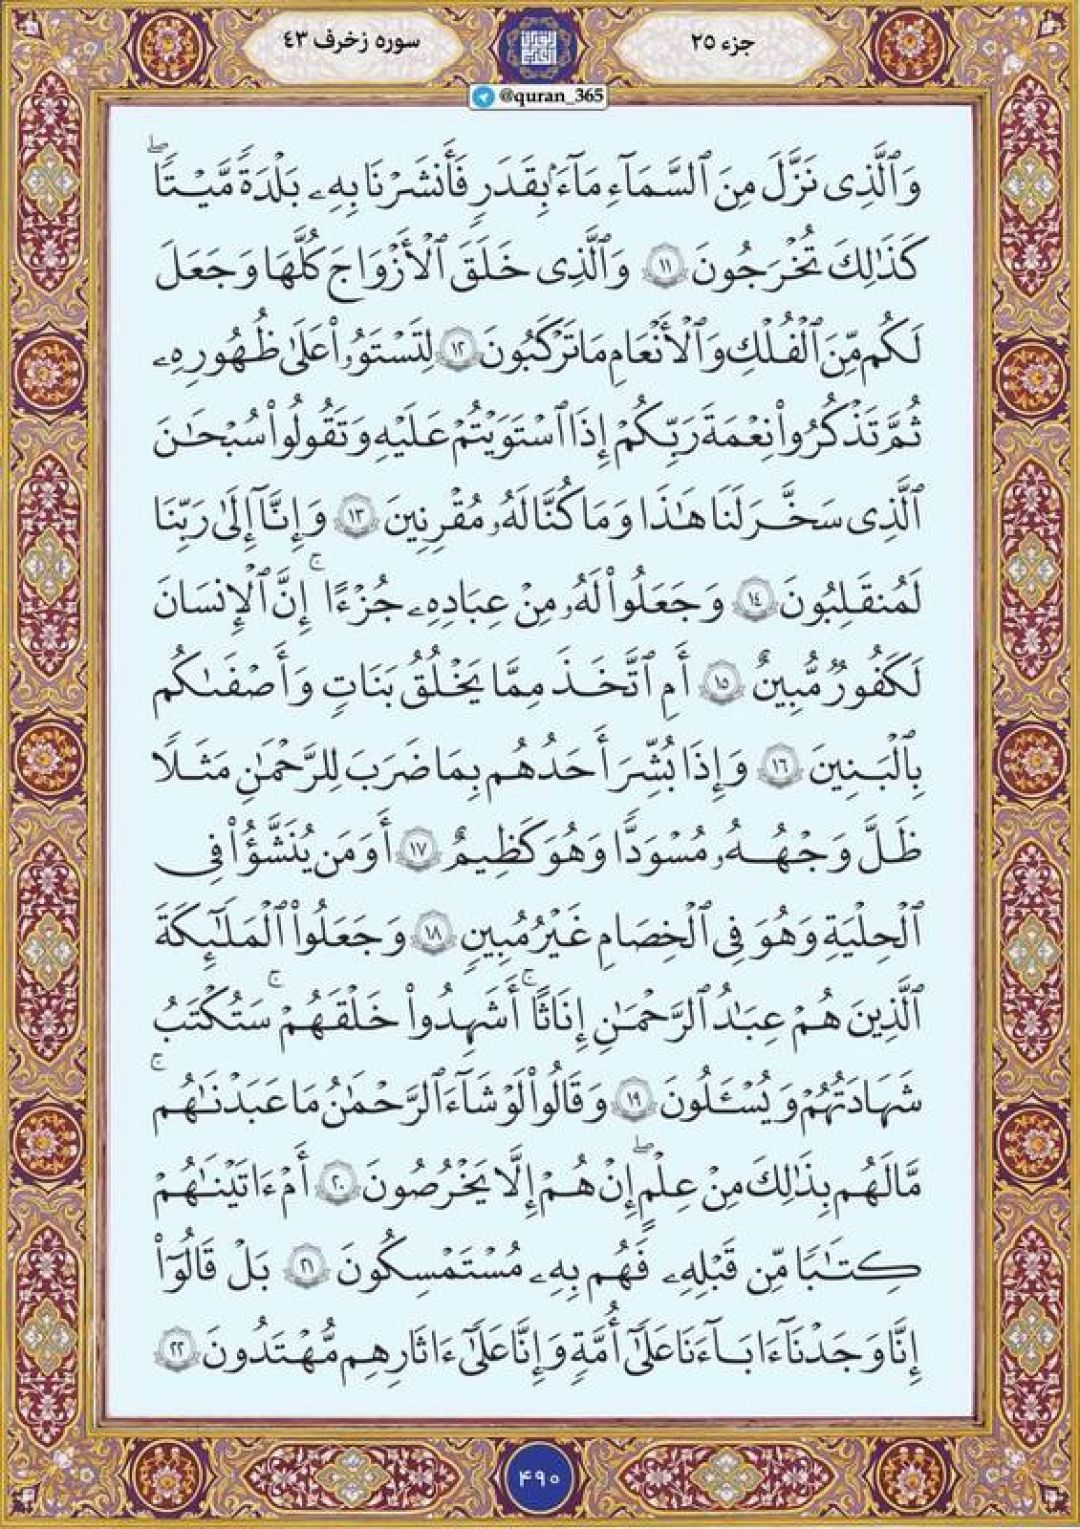 جزء ۲۵
سوره زخرف ۴۳
@quran_365
وَٱلَّذِى نَزَّلَ مِنَ ٱلسَّمَآءِ مَآءَۢ بِقَدَرٍ فَأَنشَرْنَا بِهِۦ بَلْدَةً مَّيْتًاۖ
كَذَٰلِكَ تُخْرَجُونَ ١١ وَٱلَّذِى خَلَقَ ٱلْأَزْوَاجَ كُلَّهَا وَجَعَلَ
لَكُم مِّنَ ٱلْفُلْكِ وَٱلْأَنْعَامِ مَا تَرْكَبُونَ ١٢ لِتَسْتَوُۥا۟ عَلَىٰ ظُهُورِهِۦ
ثُمَّ تَذْكُرُوا۟ نِعْمَةَ رَبِّكُمْ إِذَا ٱسْتَوَيْتُمْ عَلَيْهِ وَتَقُولُوا۟ سُبْحَٰنَ
ٱلَّذِى سَخَّرَ لَنَا هَٰذَا وَمَا كُنَّا لَهُۥ مُقْرِنِينَ ١٣ وَإِنَّآ إِلَىٰ رَبِّنَا
لَمُنقَلِبُونَ ١٤ وَجَعَلُوا۟ لَهُۥ مِنْ عِبَادِهِۦ جُزْءًاۚ إِنَّ ٱلْإِنسَانَ
لَكَفُورٌ مُّبِينٌ ١٥ أَمِ ٱتَّخَذَ مِمَّا يَخْلُقُ بَنَاتٍ وَأَصْفَىٰكُم
بِٱلْبَنِينَ ١٦ وَإِذَا بُشِّرَ أَحَدُهُم بِمَا ضَرَبَ لِلرَّحْمَٰنِ مَثَلًا
ظَلَّ وَجْهُهُۥ مُسْوَدًّا وَهُوَ كَظِيمٌ ١٧ أَوَمَن يُنَشَّؤُا۟ فِى
ٱلْحِلْيَةِ وَهُوَ فِى ٱلْخِصَامِ غَيْرُ مُبِينٍ ١٨ وَجَعَلُوا۟ ٱلْمَلَٰٓئِكَةَ
ٱلَّذِينَ هُمْ عِبَٰدُ ٱلرَّحْمَٰنِ إِنَاثًاۚ أَشَهِدُوا۟ خَلْقَهُمْۚ سَتُكْتَبُ
شَهَادَتُهُمْ وَيُسْـَٔلُونَ ١٩ وَقَالُوا۟ لَوْ شَآءَ ٱلرَّحْمَٰنُ مَا عَبَدْنَٰهُمۚ
مَّا لَهُم بِذَٰلِكَ مِنْ عِلْمٍۖ إِنْ هُمْ إِلَّا يَخْرُصُونَ ٢٠ أَمْ ءَاتَيْنَٰهُمْ
كِتَٰبًا مِّن قَبْلِهِۦ فَهُم بِهِۦ مُسْتَمْسِكُونَ ٢١ بَلْ قَالُوٓا۟
إِنَّا وَجَدْنَآ ءَابَآءَنَا عَلَىٰٓ أُمَّةٍ وَإِنَّا عَلَىٰٓ ءَاثَارِهِم مُّهْتَدُونَ ٢٢
۴۹۰